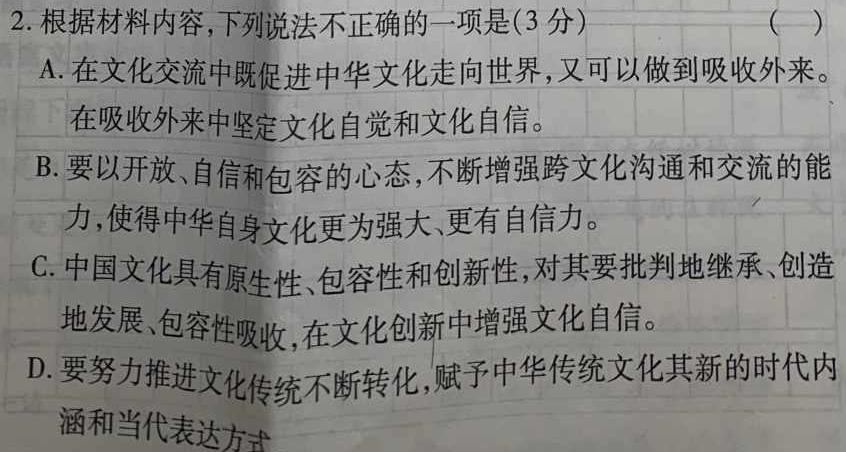 2. 根据材料内容,下列说法不正确的一项是(3 分) ( )
A. 在文化交流中既促进中华文化走向世界,又可以做到吸收外来。
在吸收外来中坚定文化自觉和文化自信。
B. 要以开放、自信和包容的心态,不断增强跨文化沟通和交流的能
力,使得中华自身文化更为强大、更有自信力。
C. 中国文化具有原生性、包容性和创新性,对其要批判地继承、创造
地发展、包容性吸收,在文化创新中增强文化自信。
D. 要努力推进文化传统不断转化,赋予中华传统文化其新的时代内
涵和当代表达方式